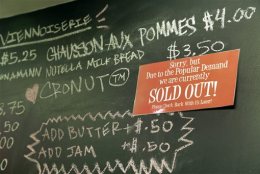 VIENNOISERIE
$5.25 CHAUSSON AUX POMMES $4.00
NUTELLA MILK BREAD $3.50
CRONUT™
Sorry, but
Due to the Popular Demand
we are currently
SOLD OUT!
Please Check Back With Us Later!
ADD BUTTER +$.50
ADD JAM +$.50